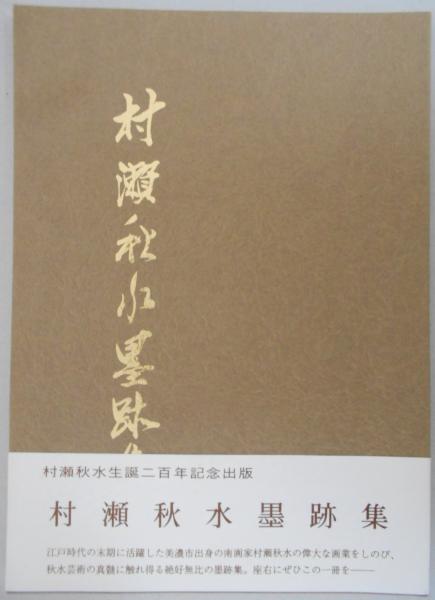 村瀬秋水墨跡集
村瀬秋水生誕二百年記念出版
村瀬秋水墨跡集
江戸時代の末期に活躍した美濃市出身の南画家村瀬秋水の偉大な画業をしのび、
秋水芸術の真髄に触れ得る絶好無比の墨跡集。座右にぜひこの一冊を――